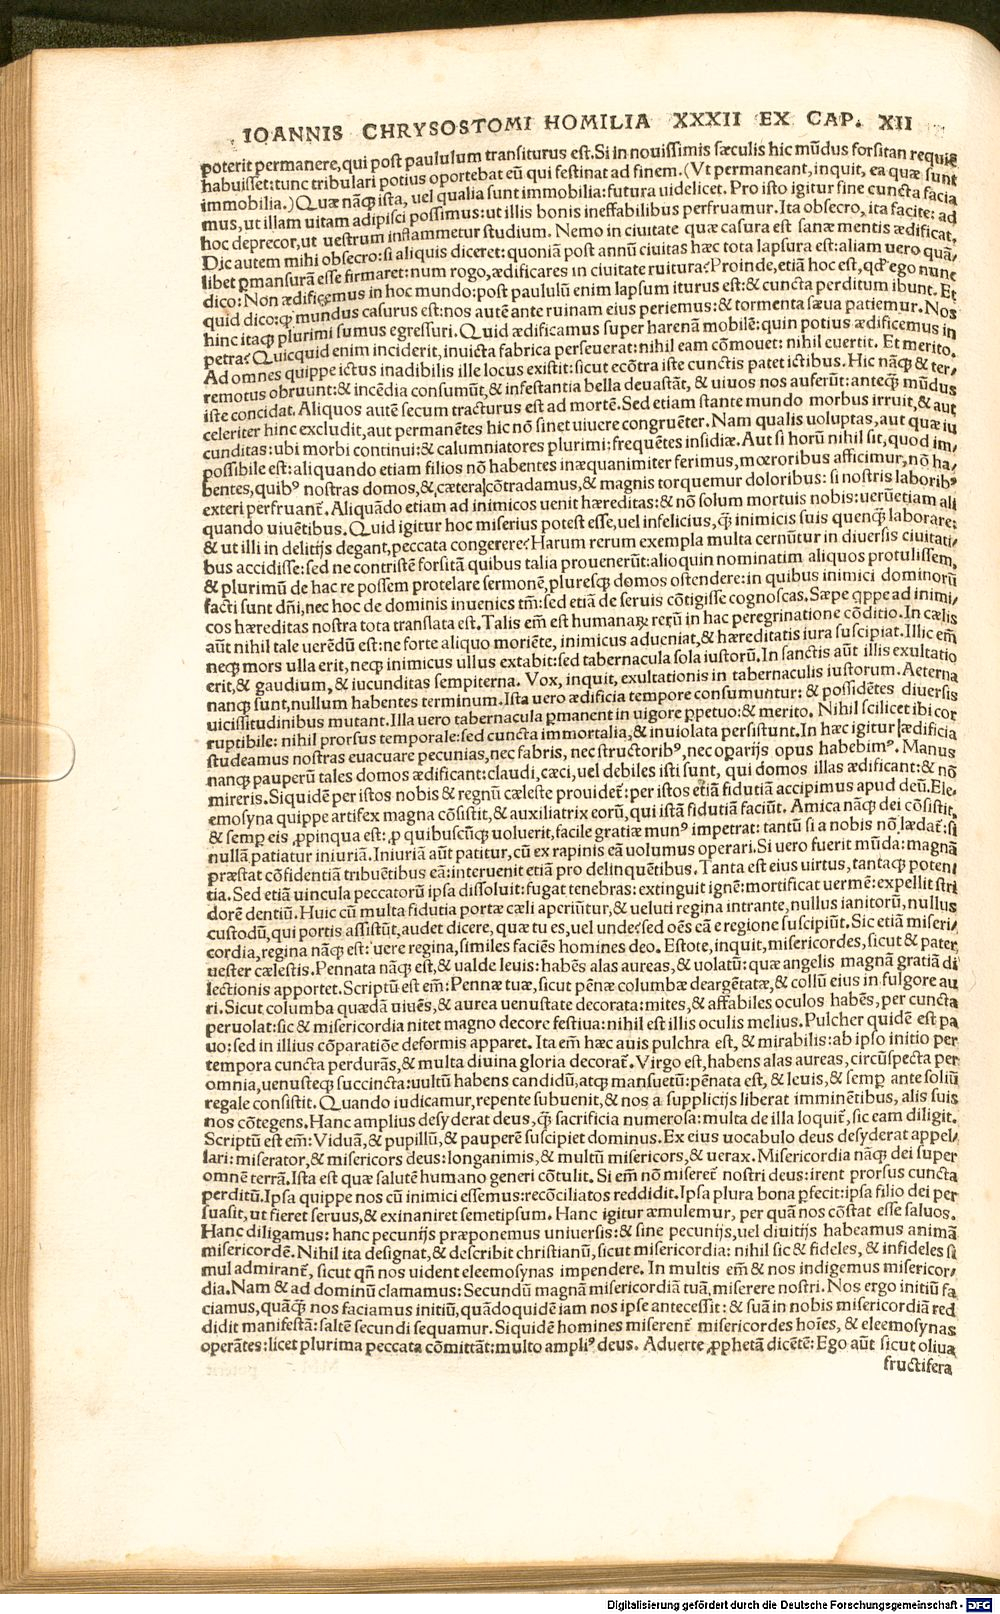 IOANNIS CHRYSOSTOMI HOMILIA XXXII EX CAP. XII
poterit permanere, qui post paululum transiturus est. Si in nouissimis sæculis hic mũdus forsitan requiẽ
habuisset: tunc tribulari potius oportebat eũ qui festinat ad finem. (Vt permaneant, inquit, ea quæ sunt
immobilia.) Quæ nãqꝫ ista, uel qualia sunt immobilia: futura uidelicet. Pro isto igitur fine cuncta facia
mus, ut illam uitam adipisci possimus: ut illis bonis ineffabilibus perfruamur. Ita obsecro, ita facite: ad
hoc deprecor, ut uestrum inflammetur studium. Nemo in ciuitate quæ casura est sanæ mentis ædificat.
Dic autem mihi obsecro: si aliquis diceret: quoniã post annũ ciuitas hæc tota lapsura est: aliam uero quã/
libet ꝑmansurã esse firmaret: num rogo, ædificares in ciuitate ruitura? Proinde, etiã hoc est, qđ ego nunc
dico: Non ædificemus in hoc mundo: post paululũ enim lapsum iturus est: & cuncta perditum ibunt. Et
quid dico: qꝫ mundus casurus est: nos autẽ ante ruinam eius periemus: & tormenta sæua patiemur. Nos
hinc itaqꝫ plurimi sumus egressuri. Quid ædificamus super harenã mobilẽ: quin potius ædificemus in
petra? Quicquid enim inciderit, inuicta fabrica perseuerat: nihil eam cõmouet: nihil euertit. Et merito.
Ad omnes quippe ictus inadibilis ille locus existit: sicut ecõtra iste cunctis patet ictibus. Hic nãqꝫ & ter/
remotus obruunt: & incẽdia consumũt, & infestantia bella deuastãt, & uiuos nos auferũt: anteqꝫ mũdus
iste concidat. Aliquos autẽ secum tracturus est ad mortẽ. Sed etiam stante mundo morbus irruit, & aut
celeriter hinc excludit, aut permanẽtes hic nõ sinet uiuere congruẽter. Nam qualis uoluptas, aut quæ iu
cunditas: ubi morbi continui: & calumniatores plurimi: frequẽtes insidiæ. Aut si horũ nihil sit, quod im/
possibile est: aliquando etiam filios nõ habentes inæquanimiter ferimus, mœroribus afficimur, nõ ha/
bentes, quibꝰ nostras domos, & cætera cõtradamus, & magnis torquemur doloribus: si nostris laboribꝰ
exteri perfruanť. Aliquãdo etiam ad inimicos uenit hæreditas: & nõ solum mortuis nobis: uerũetiam ali
quando uiuẽtibus. Quid igitur hoc miserius potest esse, uel infelicius, qꝫ̃ inimicis suis quenqꝫ̃ laborare:
& ut illi in delitijs degant, peccata congerere? Harum rerum exempla multa cernũtur in diuersis ciuitati/
bus accidisse: sed ne contristẽ forsitã quibus talia prouenerũt: alioquin nominatim aliquos protulissem,
& plurimũ de hac re possem protelare sermonẽ, pluresqꝫ domos ostendere: in quibus inimici dominorũ
facti sunt dñi, nec hoc de dominis inuenies tm̃: sed etiã de seruis cõtigisse cognoscas. Sæpe qppe ad inimi/
cos hæreditas nostra tota translata est. Talis em̃ est humanaꝝ rerũ in hac peregrinatione cõditio. In cælis
aũt nihil tale uerẽdũ est: ne forte aliquo moriẽte, inimicus adueniat, & hæreditatis iura suscipiat. Illic em̃
neqꝫ mors ulla erit, neqꝫ inimicus ullus extabit: sed tabernacula sola iustorũ. In sanctis aũt illis exultatio
erit, & gaudium, & iucunditas sempiterna. Vox, inquit, exultationis in tabernaculis iustorum. Aeterna
nanqꝫ sunt, nullum habentes terminum. Ista uero ædificia tempore consumuntur: & possidẽtes diuersis
uicissitudinibus mutant. Illa uero tabernacula ꝑmanent in uigore ꝑpetuo: & merito. Nihil scilicet ibi cor
ruptibile: nihil prorsus temporale: sed cuncta immortalia, & inuiolata persistunt. In hæc igitur ædificia
studeamus nostras euacuare pecunias, nec fabris, nec structoribꝰ, nec oꝑarijs opus habebimꝰ. Manus
nanqꝫ pauperũ tales domos ædificant: claudi, cæci, uel debiles isti sunt, qui domos illas ædificant: & nõ
mireris. Siquidẽ per istos nobis & regnũ cæleste prouideť: per istos etiã fidutiã accipimus apud deũ. Ele/
emosyna quippe artifex magna cõsistit, & auxiliatrix eorũ, qui istã fidutiã faciũt. Amica nãqꝫ dei cõsistit,
& semꝑ eis ꝓpinqua est: ꝓ quibuscũqꝫ uoluerit, facile gratiæ munꝰ impetrat: tantũ si a nobis nõ lædať: si
nullã patiatur iniuriã. Iniuriã aũt patitur, cũ ex rapinis eã uolumus operari. Si uero fuerit mũda: magnã
præstat cõfidentiã tribuẽtibus eã: interuenit etiã pro delinquẽtibus. Tanta est eius uirtus, tantaqꝫ poten/
tia. Sed etiã uincula peccatorũ ipsa dissoluit: fugat tenebras: extinguit ignẽ: mortificat uermẽ: expellit stri
dorẽ dentiũ. Huic cũ multa fidutia portæ cæli aperiũtur, & ueluti regina intrante, nullus ianitorũ, nullus
custodũ, qui portis assistũt, audet dicere, quæ tu es, uel unde: sed oẽs eã e regione suscipiũt. Sic etiã miseri/
cordia, regina nãqꝫ est: uere regina, similes faciẽs homines deo. Estote, inquit, misericordes, sicut & pater
uester cælestis. Pennata nãqꝫ est, & ualde leuis: habẽs alas aureas, & uolatũ: quæ angelis magnã gratiã di
lectionis apportet. Scriptũ est em̃: Pennæ tuæ, sicut pẽnæ columbæ deargẽtatæ, & collũ eius in fulgore au
ri. Sicut columba quædã uiuẽs, & aurea uenustate decorata: mites, & affabiles oculos habẽs, per cuncta
peruolat: sic & misericordia nitet magno decore festiua: nihil est illis oculis melius. Pulcher quidẽ est pa
uo: sed in illius cõparatiõe deformis apparet. Ita em̃ hæc auis pulchra est, & mirabilis: ab ipso initio per
tempora cuncta perdurãs, & multa diuina gloria decorať. Virgo est, habens alas aureas, circũspecta per
omnia, uenusteqꝫ succincta: uultũ habens candidũ, atqꝫ mansuetũ: pẽnata est, & leuis, & semꝑ ante soliũ
regale consistit. Quando iudicamur, repente subuenit, & nos a supplicijs liberat imminẽtibus, alis suis
nos cõtegens. Hanc amplius desyderat deus, qꝫ̃ sacrificia numerosa: multa de illa loquiť, sic eam diligit.
Scriptũ est em̃: Viduã, & pupillũ, & pauperẽ suscipiet dominus. Ex eius uocabulo deus desyderat appel/
lari: miserator, & misericors deus: longanimis, & multũ misericors, & uerax. Misericordia nãqꝫ dei super
omnẽ terrã. Ista est quæ salutẽ humano generi cõtulit. Si em̃ nõ misereť nostri deus: irent prorsus cuncta
perditũ. Ipsa quippe nos cũ inimici essemus: recõciliatos reddidit. Ipsa plura bona ꝑfecit: ipsa filio dei per
suasit, ut fieret seruus, & exinaniret semetipsum. Hanc igitur æmulemur, per quã nos cõstat esse saluos.
Hanc diligamus: hanc pecunijs præponemus uniuersis: & sine pecunijs, uel diuitijs habeamus animã
misericordẽ. Nihil ita designat, & describit christianũ, sicut misericordia: nihil sic & fideles, & infideles si
mul admiranť, sicut qñ nos uident eleemosynas impendere. In multis em̃ & nos indigemus misericor/
dia. Nam & ad dominũ clamamus: Secundũ magnã misericordiã tuã, miserere nostri. Nos ergo initiũ fa
ciamus, quãqꝫ̃ nos faciamus initiũ, quãdoquidẽ iam nos ipse antecessit: & suã in nobis misericordiã red
didit manifestã: saltẽ secundi sequamur. Siquidẽ homines miserenť misericordes hoĩes, & eleemosynas
operãtes: licet plurima peccata cõmittãt: multo ampliꝰ deus. Aduerte ꝓphetã dicẽtẽ: Ego aũt sicut oliua
fructifera
Digitalisierung gefördert durch die Deutsche Forschungsgemeinschaft - DFG